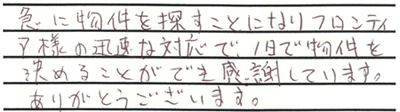 急に物件を探すことになりフロンティ
ア様の迅速な対応で、1日で物件を
決めることができ感謝しています。
ありがとうございます。